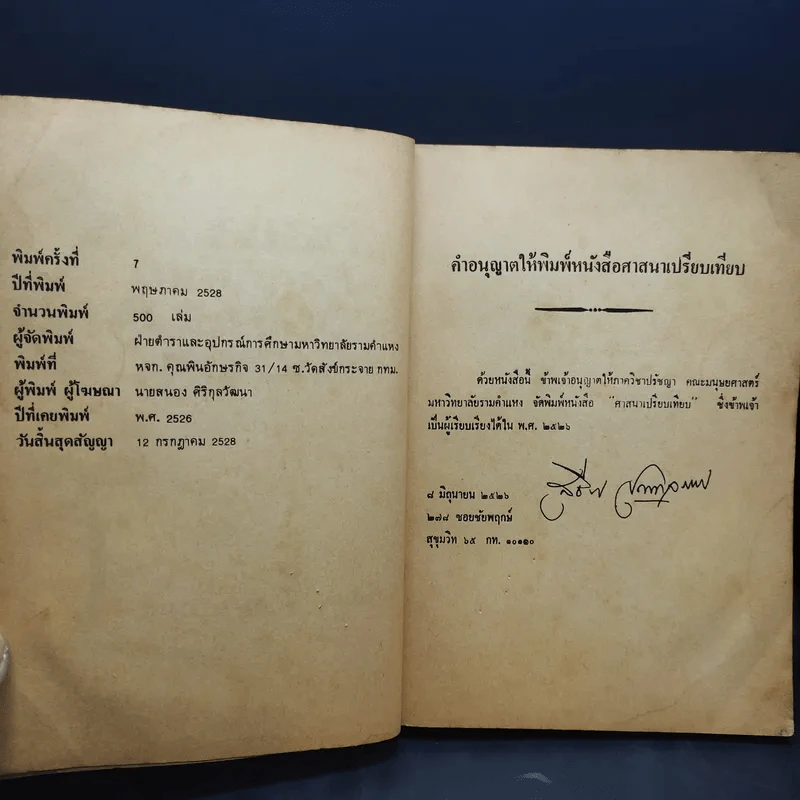 พิมพ์ครั้งที่ 7
ปีที่พิมพ์ พฤษภาคม 2528
จำนวนพิมพ์ 500 เล่ม
ผู้จัดพิมพ์ ฝ่ายตำราและอุปกรณ์การศึกษามหาวิทยาลัยรามคำแหง
พิมพ์ที่ หจก. คุณพินอักษรกิจ 31/14 ซ.วัดสังข์กระจาย กทม.
ผู้พิมพ์ ผู้โฆษณา นายสนอง ศิริกุลวัฒนา
ปีที่เคยพิมพ์ พ.ศ. 2526
วันสิ้นสุดสัญญา 12 กรกฎาคม 2528
คำอนุญาตให้พิมพ์หนังสือศาสนาเปรียบเทียบ
ด้วยหนังสือนี้ ข้าพเจ้าอนุญาตให้ภาควิชาปรัชญา คณะมนุษยศาสตร์
มหาวิทยาลัยรามคำแหง จัดพิมพ์หนังสือ "ศาสนาเปรียบเทียบ" ซึ่งข้าพเจ้า
เป็นผู้เรียบเรียงได้ใน พ.ศ. ๒๕๒๖
๘ มิถุนายน ๒๕๒๖
๒๗๘ ซอยชัยพฤกษ์
สุขุมวิท ๖๕ กท. ๑๐๑๑๐